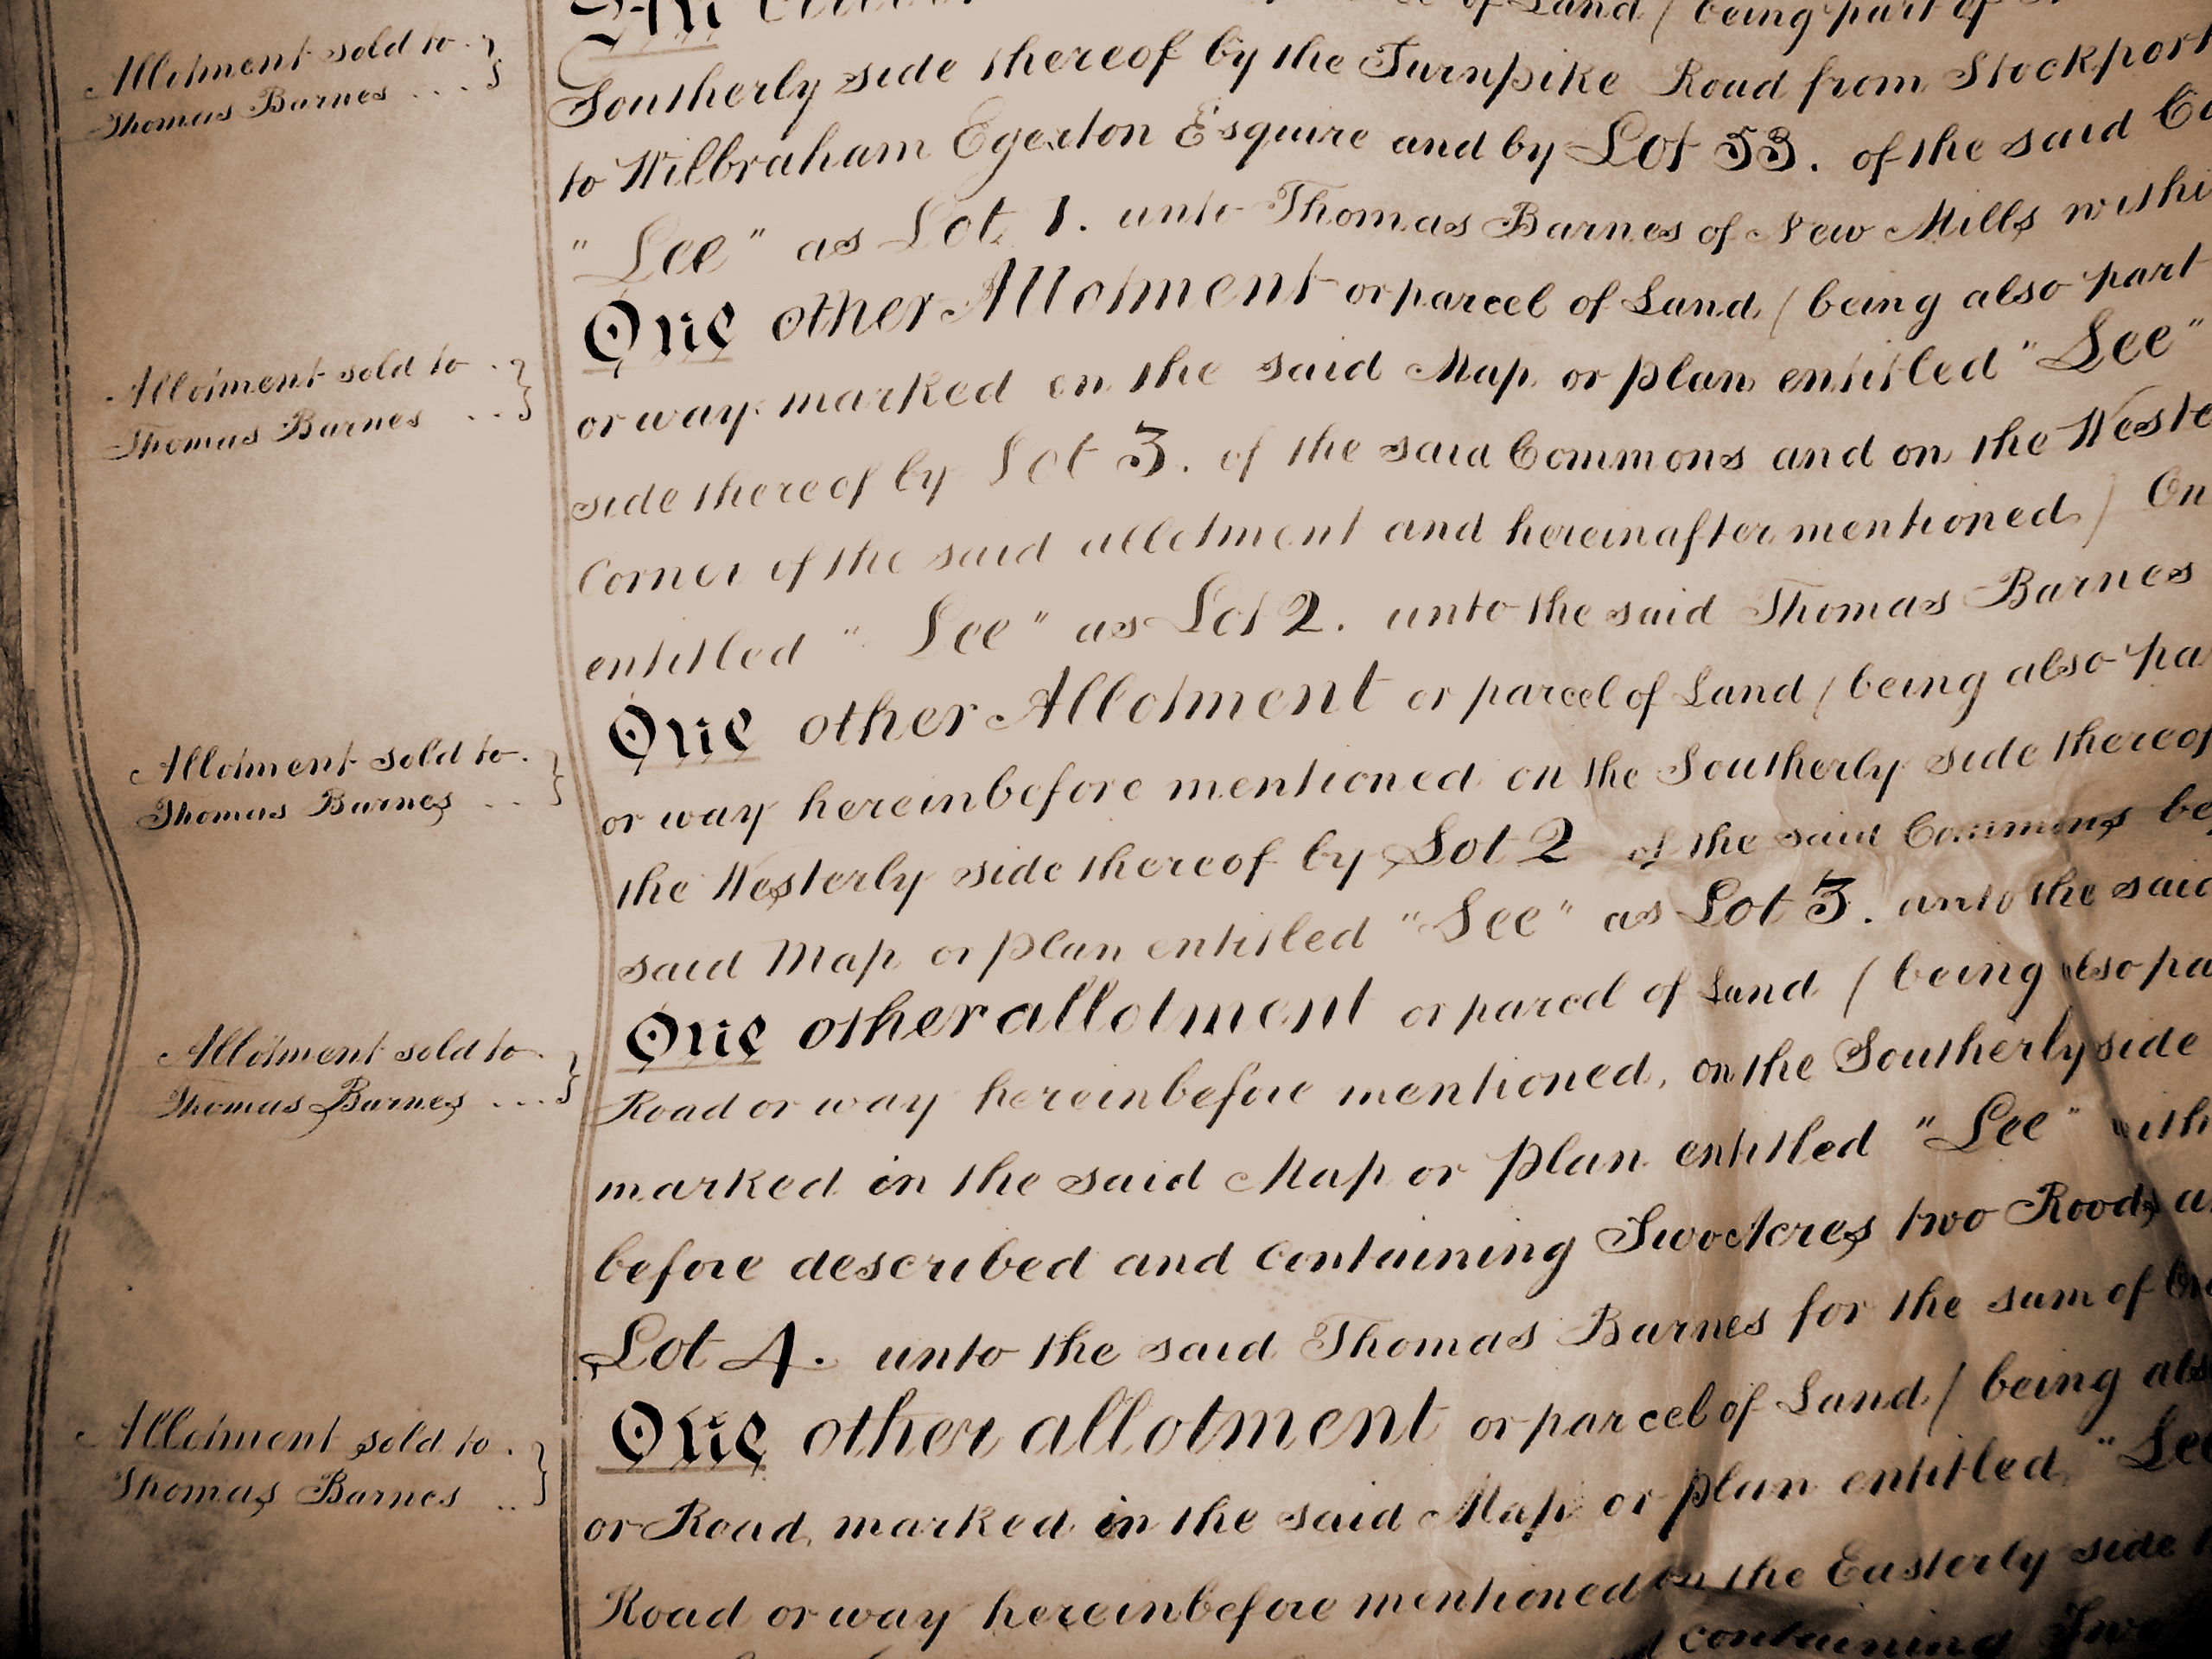 Allotment sold to
Thomas Barnes ...
Allotment sold to
Thomas Barnes ..
Allotment sold to.
Thomas Barnes ..
Allotment sold to
Thomas Barnes ...
Allotment sold to.
Thomas Barnes ..
of Land ( being part of
Southerly side thereof by the Turnpike Road from Stockport
to Wilbraham Egerton Esquire and by Lot 53. of the said
"Lee" as Lot 1. unto Thomas Barnes of New Mills
One other Allotment or parcel of Land ( being also part
or way marked on the said Map or plan entitled "Lee"
side thereof by Lot 3. of the said Commons and on the
Corner of the said allotment and hereinafter mentioned ) On
entitled "Lee" as Lot 2. unto the said Thomas Barnes
One other Allotment or parcel of Land ( being also
or way hereinbefore mentioned on the Southerly side thereof
the Westerly side thereof by Lot 2 of the said Commons
said Map or plan entitled "Lee" as Lot 3. unto the said
One other allotment or parcel of Land ( being also
Road or way hereinbefore mentioned, on the Southerly side
marked in the said Map or plan entitled "Lee" with
before described and containing Two Acres two Roods
Lot 4. unto the said Thomas Barnes for the sum of
One other allotment or parcel of Land ( being
or Road, marked in the said Map or plan entitled "Lee
Road or way hereinbefore mentioned on the Easterly side
containing